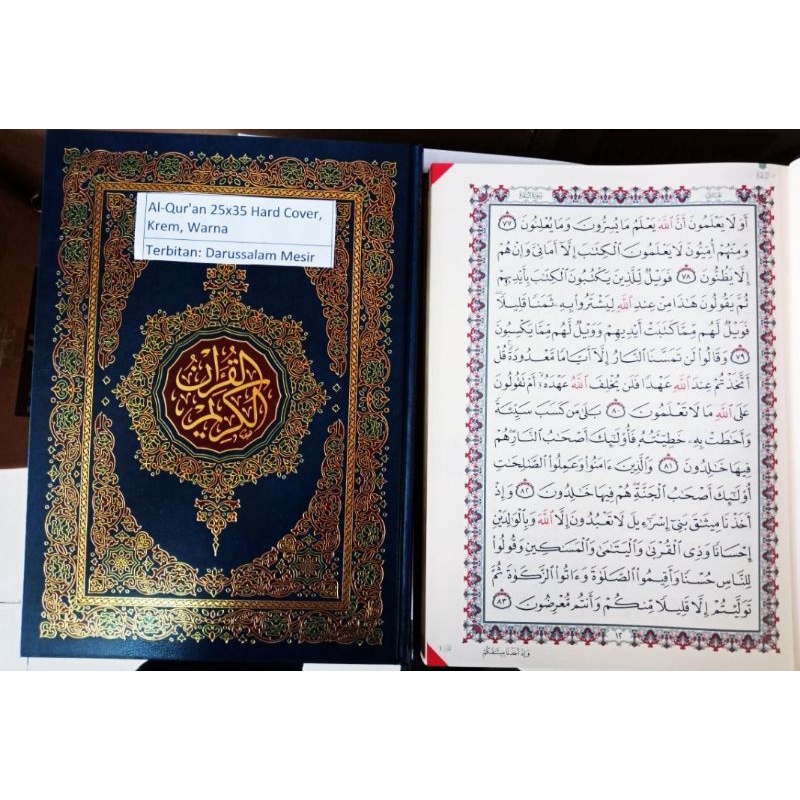 Al-Qur'an 25x35 Hard Cover,
Krem, Warna
Terbitan: Darussalam Mesir
القرآن
الكريم
سورة البقرة
أَوَلَا يَعْلَمُونَ أَنَّ اللَّهَ يَعْلَمُ مَا يُسِرُّونَ وَمَا يُعْلِنُونَ ٧٧
وَمِنْهُمْ أُمِّيُّونَ لَا يَعْلَمُونَ الْكِتَٰبَ إِلَّا أَمَانِيَّ وَإِنْ هُمْ
إِلَّا يَظُنُّونَ ٧٨ فَوَيْلٌ لِّلَّذِينَ يَكْتُبُونَ الْكِتَٰبَ بِأَيْدِيهِمْ
ثُمَّ يَقُولُونَ هَٰذَا مِنْ عِندِ اللَّهِ لِيَشْتَرُوا بِهِ ثَمَنًا قَلِيلًا
فَوَيْلٌ لَّهُم مِّمَّا كَتَبَتْ أَيْدِيهِمْ وَوَيْلٌ لَّهُم مِّمَّا يَكْسِبُونَ
٧٩ وَقَالُوا لَن تَمَسَّنَا النَّارُ إِلَّا أَيَّامًا مَّعْدُودَةً قُلْ
أَتَّخَذْتُمْ عِندَ اللَّهِ عَهْدًا فَلَن يُخْلِفَ اللَّهُ عَهْدَهُ أَمْ تَقُولُونَ
عَلَى اللَّهِ مَا لَا تَعْلَمُونَ ٨٠ بَلَىٰ مَن كَسَبَ سَيِّئَةً
وَأَحَٰطَتْ بِهِ خَطِيٓـَٔتُهُ فَأُولَٰئِكَ أَصْحَٰبُ النَّارِ هُمْ
فِيهَا خَٰلِدُونَ ٨١ وَالَّذِينَ ءَامَنُوا وَعَمِلُوا الصَّٰلِحَٰتِ
أُولَٰئِكَ أَصْحَٰبُ الْجَنَّةِ هُمْ فِيهَا خَٰلِدُونَ ٨٢ وَإِذْ
أَخَذْنَا مِيثَٰقَ بَنِي إِسْرَٰءِيلَ لَا تَعْبُدُونَ إِلَّا اللَّهَ وَبِالْوَٰلِدَيْنِ
إِحْسَانًا وَذِي الْقُرْبَىٰ وَالْيَتَٰمَىٰ وَالْمَسَٰكِينِ وَقُولُوا
لِلنَّاسِ حُسْنًا وَأَقِيمُوا الصَّلَوٰةَ وَءَاتُوا الزَّكَوٰةَ ثُمَّ
تَوَلَّيْتُمْ إِلَّا قَلِيلًا مِّنكُمْ وَأَنتُم مُّعْرِضُونَ ٨٣
١٢
وَإِذْ أَخَذْنَا مِيثَٰقَكُمْ